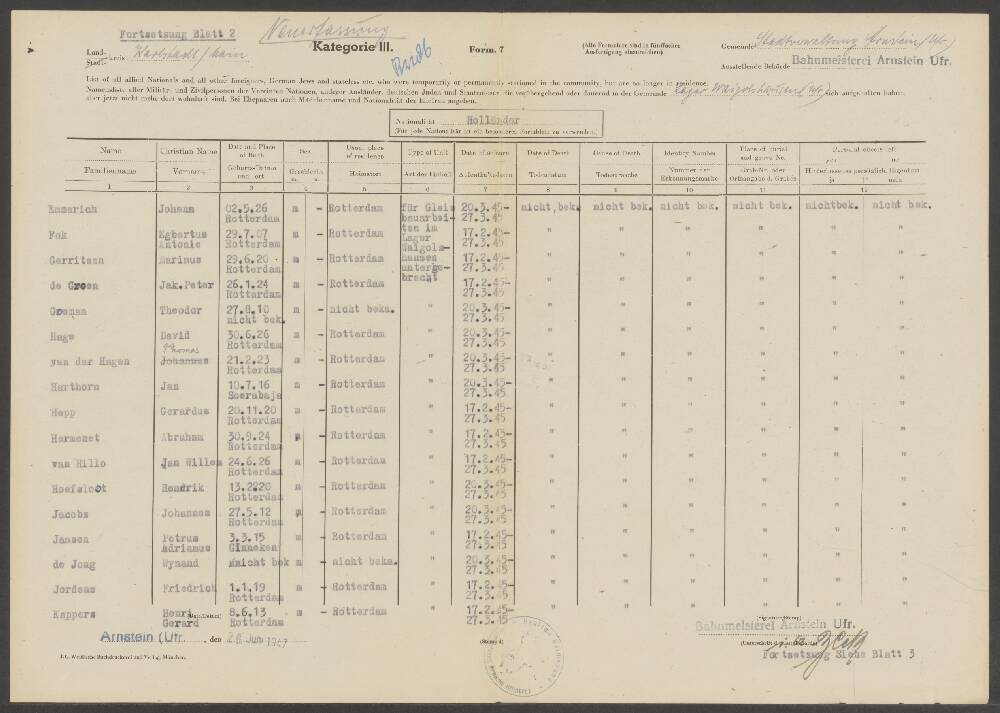 Fortsetsung Blatt 2
Neuerfassung
Kategorie III.
Form. 7
(Alle Formulare sind in fünffacher
Ausfertigung einzureichen)
Land-
Stadt-
kreis Karlstadt/Main
Gemeinde Stadtverwaltung Arnstein/Ufr)
Ausstellende Behörde Bahnmeisterei Arnstein Ufr.
List of all allied Nationals and all other foreigners, German Jews and stateless etc. who were temporarily or permanently stationed in the community, but are no longer in residence.
Namensliste aller Militär- und Zivilpersonen der Vereinten Nationen, anderer Ausländer, deutschen Juden und Staatenloser die vorübergehend oder dauernd in der Gemeinde Lager Waigolshausen/Ufr sich aufgehalten haben,
aber jetzt nicht mehr dort wohnhaft sind. Bei Ehepaaren auch Mädchenname und Nationalität der Ehefrau angeben.
Nationalität Holländer
(Für jede Nationalität ist ein besonderes Formblatt zu verwenden)
Name Christian Name Date and Place of Birth Sex Usual place of residence Type of Unit Date of sojourn Date of Death Cause of Death Identity Number Place of burial and grave No. Personal objects left
Familienname Vorname Geburts-Datum und -ort Geschlecht Heimatort Art der Einheit Aufenthaltsdatum Todesdatum Todesursache Nummer der Erkennungsmarke Grab-No. oder Ortsangabe d. Grabes Hinterlassenes persönlich. Eigentum
1 2 3 4 5 6 7 8 9 10 11 12
Emmerich Johann 02.5.26 m - Rotterdam für Gleis 20.3.45- nicht bek. nicht bek. nicht bek. nicht bek. nichtbek. nicht bek.
Rotterdam bauarbei- 27.3.45
Fok Egbertus 29.7.07 m - Rotterdam ten im 17.2.45- " " " " " "
Antonie Rotterdam Lager 27.3.45
Gerritsen Marinus 29.6.20 m - Rotterdam Waigols- hausen 17.2.45- " " " " " "
Rotterdam unterge- 27.3.45
de Groen Jak.Peter 26.1.24 m - Rotterdam bracht 17.2.45- " " " " " "
Rotterdam 27.3.45
Groman Theodor 27.8.10 m - nicht bekn. " 20.3.45- " " " " " "
nicht bek. 27.3.45
Hage David 30.6.26 m - Rotterdam " 20.3.45- " " " " " "
Rotterdam 27.3.45
Thomas
van der Hagen Johannes 21.2.23 m - Rotterdam " 20.3.45- " " " " " "
Rotterdam 27.3.45
Harthorn Jan 10.7.16 m - Rotterdam " 20.3.45- " " " " " "
Soerabaja 27.3.45
Happ Gerardus 20.11.20 m - Rotterdam " 17.2.45- " " " " " "
Rotterdam 27.3.45
Hermenet Abraham 30.9.24 m - Rotterdam " 17.2.45- " " " " " "
Rotterdam 27.3.45
van Hillo Jan Willem 24.6.26 m - Rotterdam " 17.2.45- " " " " " "
Rotterdam 27.3.45
Hoefsloot Hendrik 13.2220 m - Rotterdam " 20.3.45- " " " " " "
Rotterdam 27.3.45
Jacobs Johannes 27.5.12 m - Rotterdam " 20.3.45- " " " " " "
Rotterdam 27.3.45
Jansen Petrus 3.3.15 m - Rotterdam " 17.2.45- " " " " " "
Adrianus Ginneken 27.3.45
de Jong Wynand nicht bek m - nicht bekn. " 20.3.45- " " " " " "
27.3.45
Jordens Friedrich 1.1.19 m - Rotterdam " 17.2.45- " " " " " "
Rotterdam 27.3.45
Kappers Henri 8.6.13 m - Rotterdam " 17.2.45- " " " " " "
Gerard Rotterdam 27.3.45
Arnstein (Ufr. , den 26. Juni 1947
(Stempel)
Bahnmeisterei Arnstein Ufr.
Fortsetsung Siehe Blatt 3
J.G. Weiß'sche Buchdruckerei und Verlag, München.